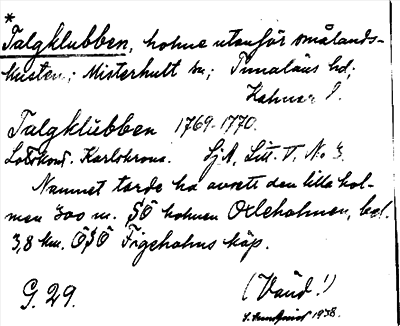 *
Talgklubben, holme utanför smålands-
kusten; Misterhult sn; Tunaläns hd;
Kalmar l.
Talgklubben 1769-1770.
Lotskont. Karlskrona. SjA, Litt. T, No 3.
Namnet torde ha avsett den lilla hol-
men 300 m. SO holmen Orleholmen, bel.
3,8 km. OSO Figeholms köp.
G. 29. (Vänd!)
1938.